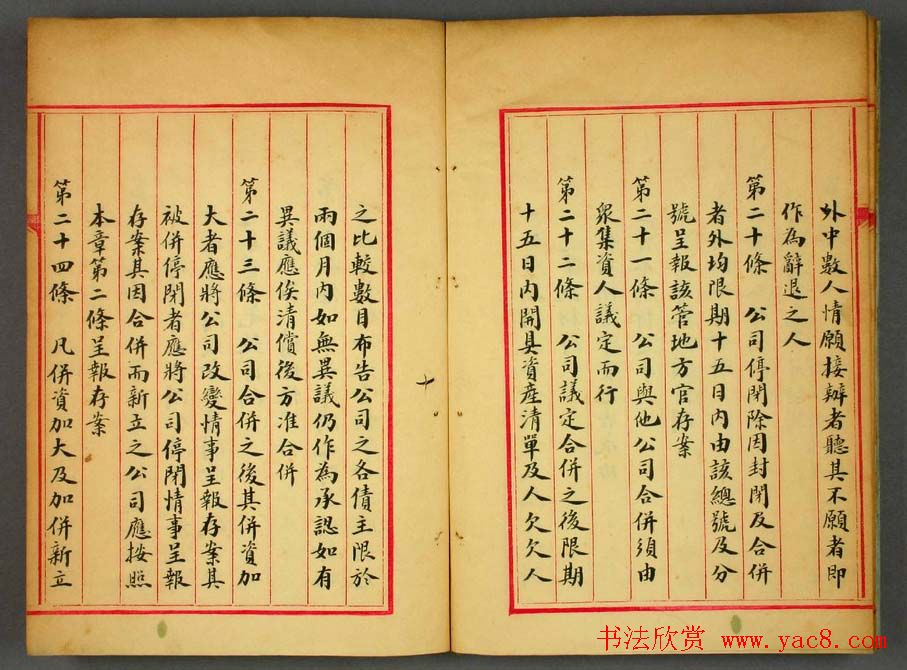 外中數人情願接辦者聽其不願者即
作為辭退之人
第二十條　公司停閉除因封閉及合併
者外均限期十五日內由該總號及分
號呈報該管地方官存案
第二十一條　公司與他公司合併須由
衆集資人議定而行
第二十二條　公司議定合併之後限期
十五日內開具資產清單及人欠欠人
之比較數目布告公司之各債主限於
兩個月內如無異議仍作為承認如有
異議應俟清償後方准合併
第二十三條　公司合併之後其併資加
大者應將公司改變情事呈報存案其
被併停閉者應將公司停閉情事呈報
存案其因合併而新立之公司應按照
本章第二條呈報存案
第二十四條　凡併資加大及加併新立
十
书法欣赏 www.yac8.com